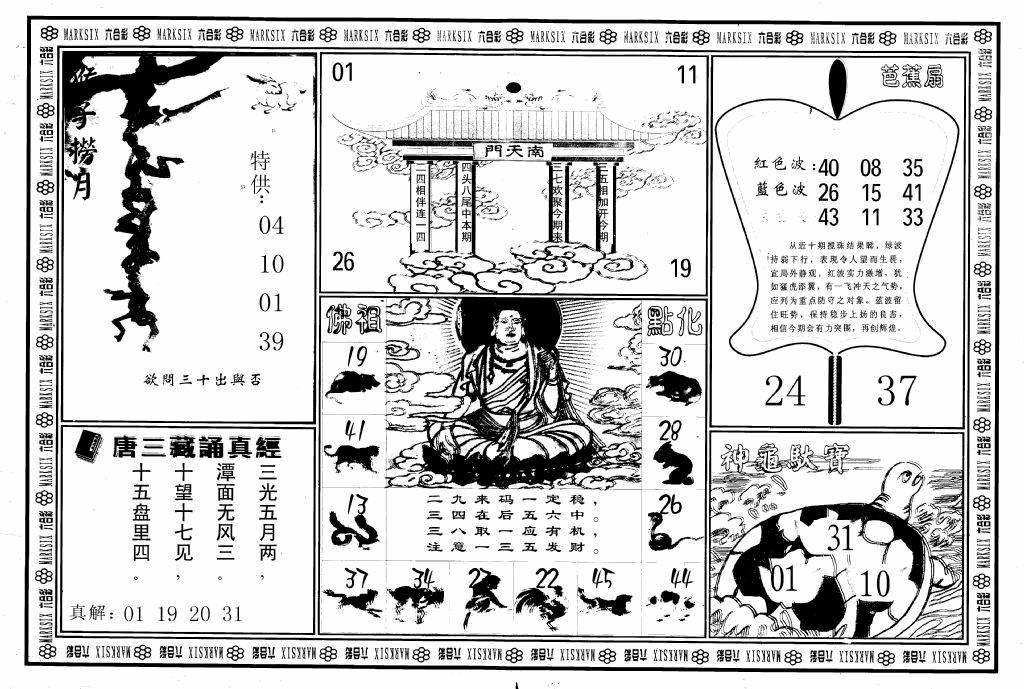 MARKSIX 六合彩 MARKSIX 六合彩 MARKSIX 六合彩 MARKSIX 六合彩 MARKSIX 六合彩 MARKSIX 六合彩 MARKSIX 六合彩 MARKSIX 六合彩 MARKSIX 六合彩 MARKSIX 六合彩
猴子撈月
特供:
04
10
01
39
欲問三十出與否
唐三藏誦真經
三光五月两,
潭面无风三。
十望十七见,
十五盘里四。
真解: 01 19 20 31
01
11
南天門
二四相伴连一四
四头八尾中本期
三七欢聚今期来
二五相加开今期
26
19
佛祖
點化
19
30
41
28
13
26
二九来码一定稳,
三四在后五六中。
三八取一应有机,
注意一三五发财。
37
34
22
45
44
芭蕉扇
紅色波: 40 08 35
藍色波 26 15 41
43 11 33
从近十期搅珠结果睇,绿波
持弱下行,表現令人望而生畏,
宜局外静观。红波实力激增,犹
如猛虎添翼,有一飞冲天之气势,
应列为重点防守之对象。蓝波留
住旺势,保持稳步上扬的良态,
相信今期会有力突围,再创辉煌。
24
37
神龜馱寶
31
01
10